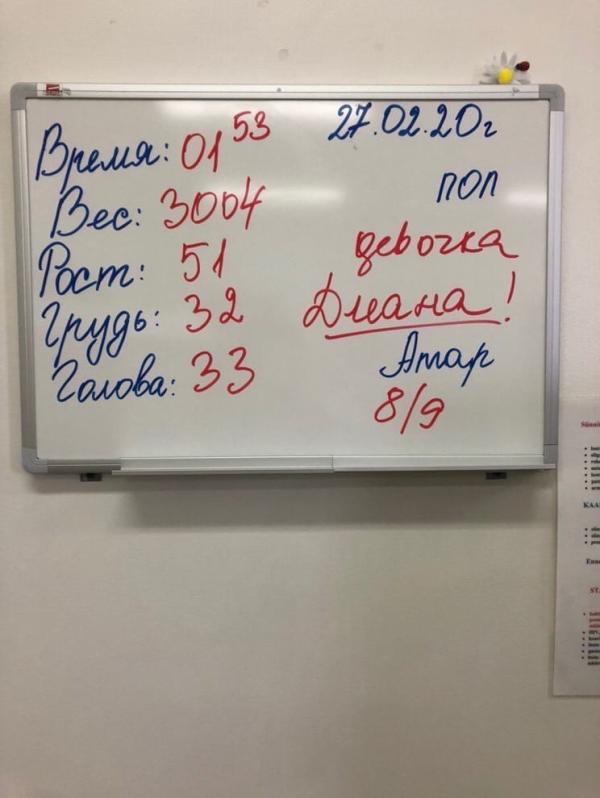 Время: 01 53
Вес: 3004
Рост: 51
Грудь: 32
Голова: 33
27.02.20г
поп
девочка
Диана!
Апгар
8/9
KAA
ST